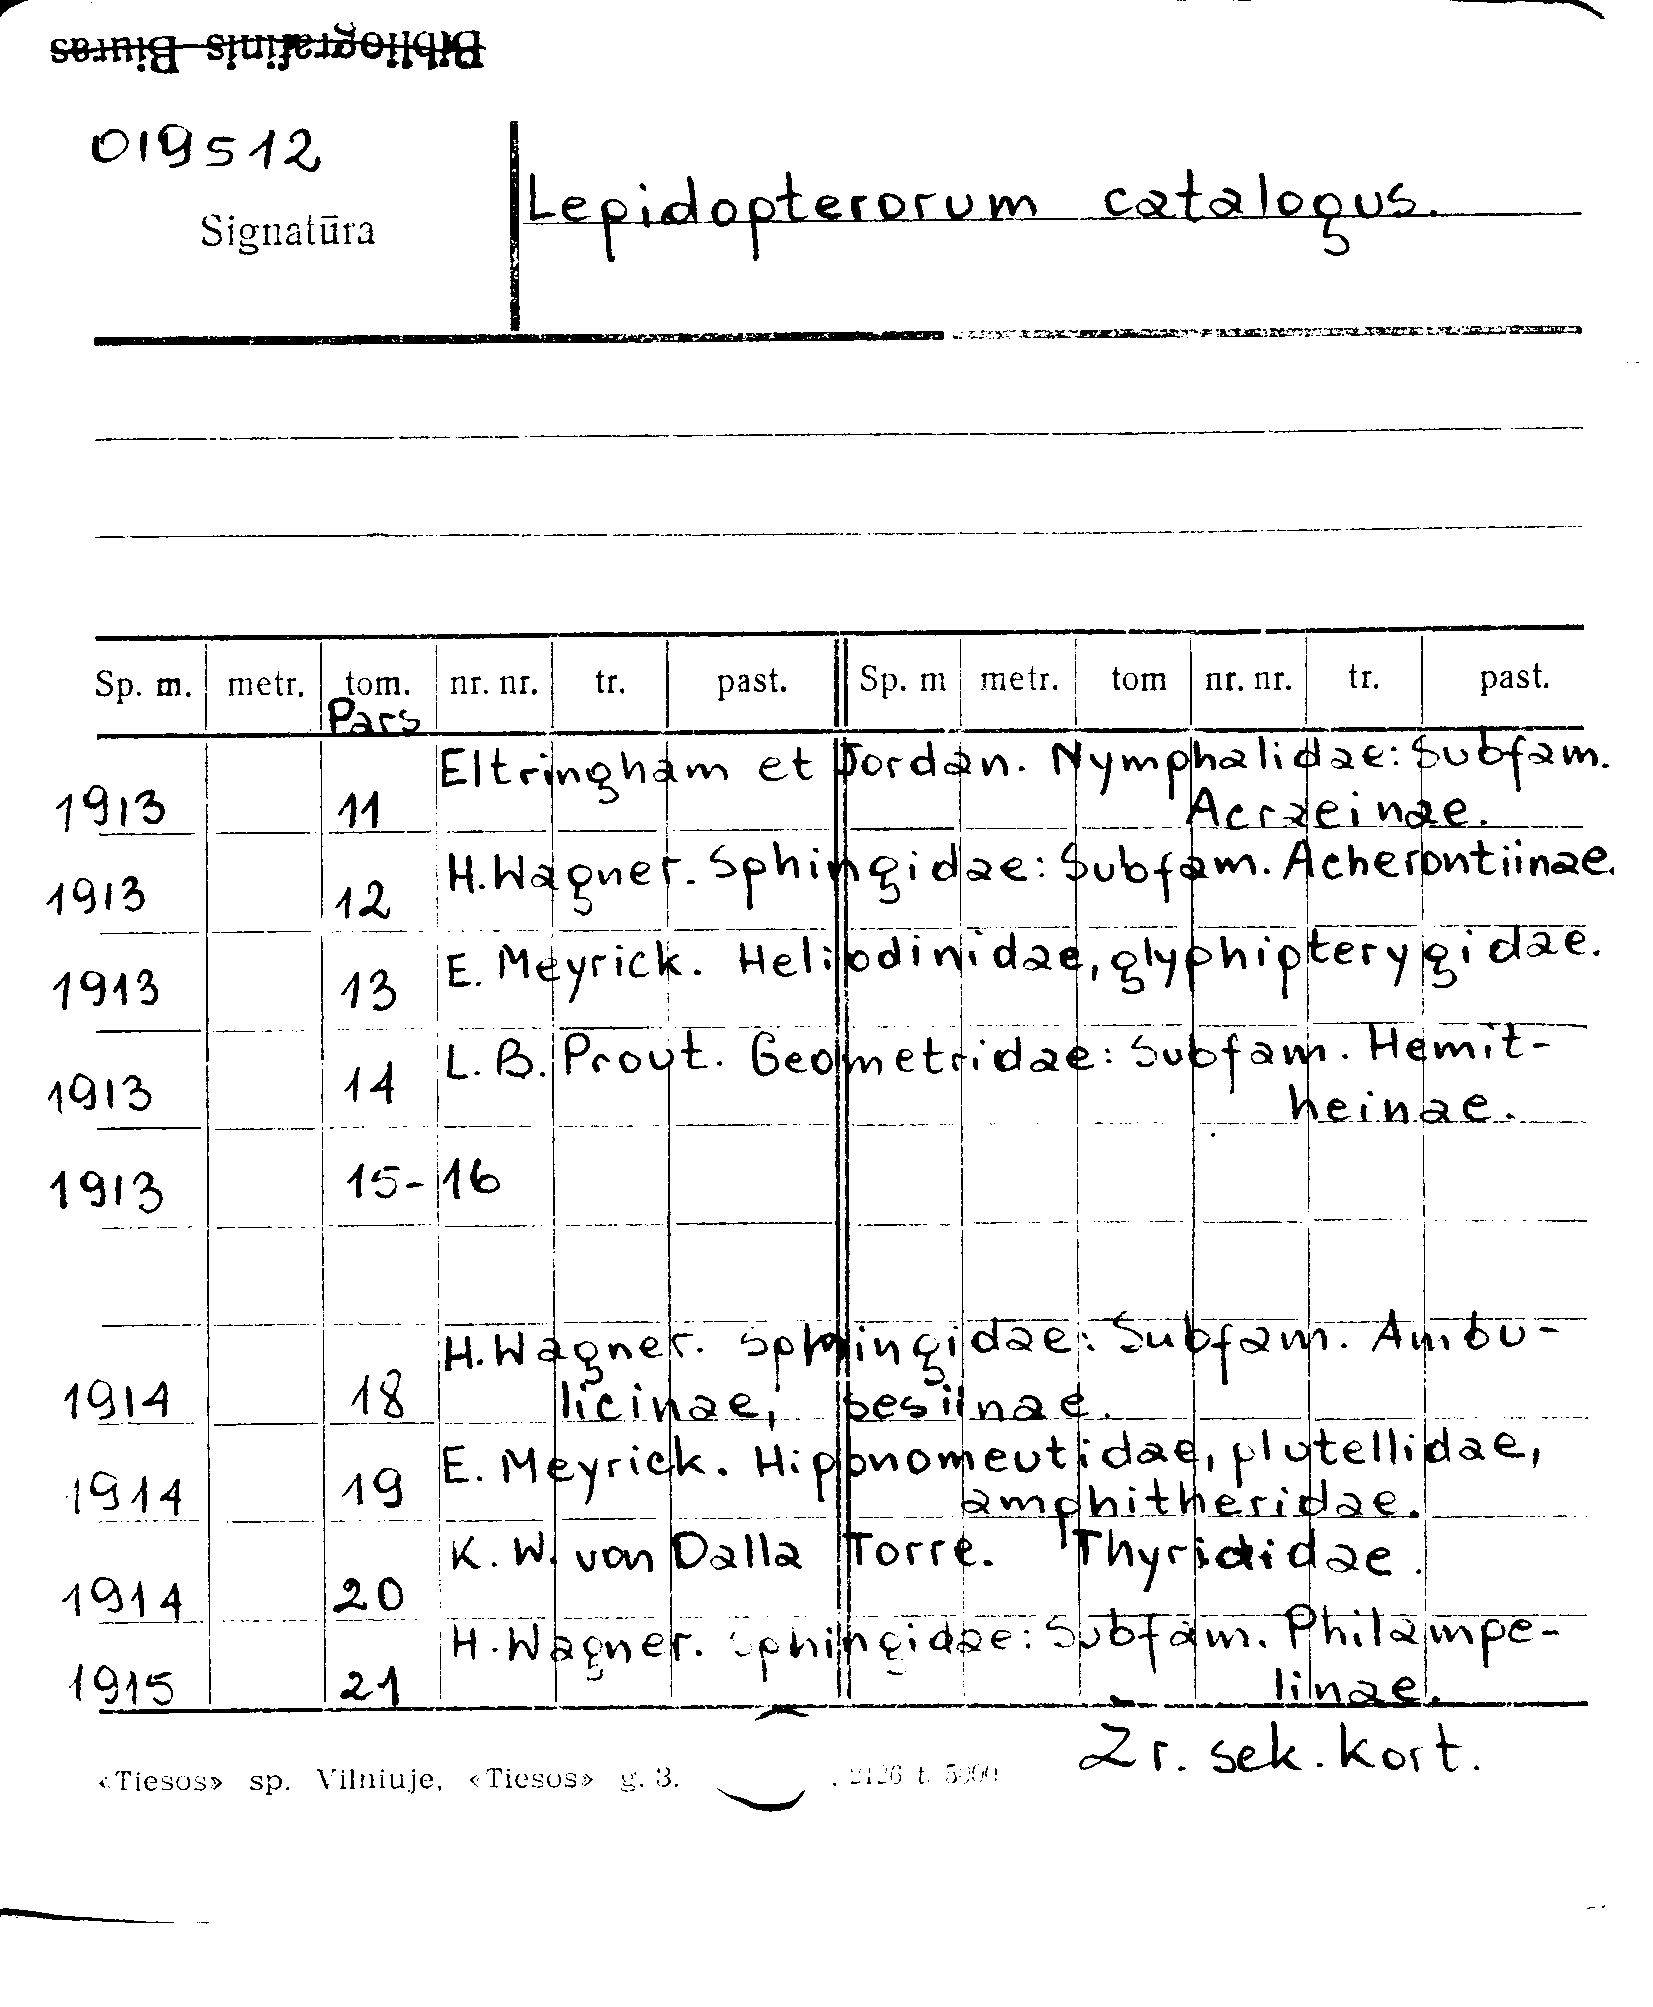 Bibliografinis Biuras
019512
Signatūra
Lepidopterorum catalogus.
Sp. m. metr. tom. nr. nr. tr. past. Sp. m metr. tom nr. nr. tr. past.
Pars
1913 11 Eltringham et Jordan. Nymphalidae: Subfam.
Acraeinae.
1913 12 H. Wagner. Sphingidae: Subfam. Acherontiinae.
1913 13 E. Meyrick. Heliodinidae, glyphipterygidae.
1913 14 L. B. Prout. Geometridae: Subfam. Hemit-
heinae.
1913 15-16
1914 18 H. Wagner. Sphingidae: Subfam. Ambu-
licinae, sesiinae.
1914 19 E. Meyrick. Hipponomeutidae, plutellidae,
amphitheridae.
1914 20 K. W. von Dalla Torre. Thyrididae.
1915 21 H. Wagner. Sphingidae: Subfam. Philampe-
linae.
Žr. sek. kort.
«Tiesos» sp. Vilniuje, «Tiesos» g. 3. 2126 t. 5000